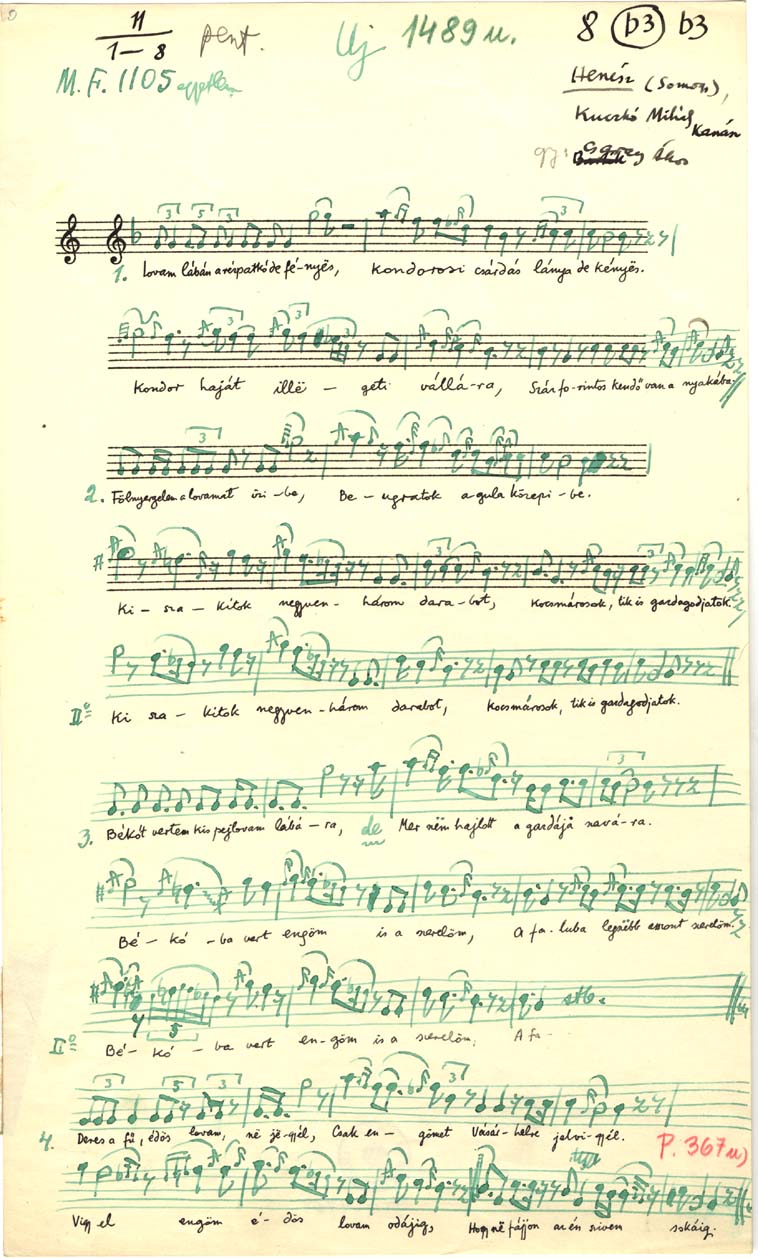 11
1–8
pent.
Uj 1489 u.
8 (b3) b3
M.F. 1105
Henész (Somogy),
Kuczkó Mihály
Kanán
gy: Garay Ákos
3 5 3 3
1. Lovam lábán a rézpatkó de fé-nyës, kondorosi csárdás lánya de kényës.
3 3 3
Kondor haját illë - geti vállá-ra, Száz fo-rintos kendő van a nyakába.
3
2. Fölnyergelem a lovamat izi-be, Be - ugratok a gula közepi-be.
3 3
Ki - sza - kitok negyven - három dara-bot, Kocsmárosok, tik is gazdagodjatok.
IIº Ki sza - kitok negyven-három darabot, Kocsmárosok, tik is gazdagodjatok.
3
3. Békót vertem kis pejlovam lábá-ra, de Mer nëm hajlott a gazdájá szavá-ra.
Bé - kó - ba vert engöm is a szerelöm, A fa-luba legszëbb asszont szeretöm.
5 stb.
IIº Bé - kó - ba vert en-göm is a szerelöm, A fa-
3 5 3 3
4. Deres a fű, édös lovam, në jë-gyél, Csak en - gömet Vásár-helre jelvi-gyél.
P. 367 u)
Vigy el engöm é - dös lovam odájig, Hogy në fájjon az én szivem sokáig.